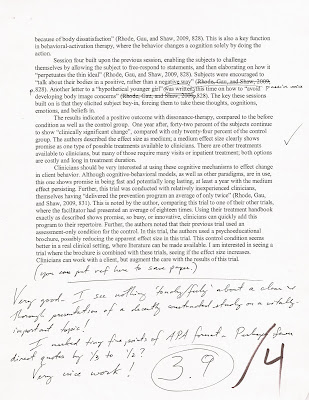 because of body dissatisfaction" (Rhode, Gau, and Shaw, 2009, 828). This is also a key function
is behavioral-activation therapy, where the behavior changes a cognition solely by doing the
action.
Session four built upon the previous session, enabling the subjects to challenge
themselves by allowing the subject to free-respond to statements, and then elaborating on how it
"perpetuates the thin ideal" (Rhode, Gau, and Shaw, 2009, 828). Subjects were encouraged to
"talk about their bodies in a positive, rather than a negative way" (Rhode, Gau, and Shaw, 2009,
p. 828). Another letter to a "hypothetical younger girl" was written, this time on how to "avoid passive voice
developing body image concerns" (Rhode, Gau, and Shaw, 2009, 828). The key these sessions
built on is that they elicited subject buy-in, forcing them to take these thoughts, cognitions,
emotions, and beliefs in.
The results indicated a positive outcome with dissonance-therapy, compared to the before
condition as well as the control group. One year after, forty-two percent of the subjects continue
to show "clinically significant change", compared with only twenty-four percent of the control
group. The authors described the effect size as medium; a medium effect size clearly shows
promise as one type of possible treatments available to clinicians. There are other treatments
available to clinicians, but many of those require many visits or inpatient treatment; both options
are costly and long in treatment duration.
Clinicians should be very interested at using these cognitive mechanisms to effect change
in client behavior. Although cognitive-behavioral models, as well as other paradigms, are in use,
this one shows promise in being fast and potentially long lasting, at least a year with the medium
effect persisting. Further, this trial was conducted with relatively inexperienced clinicians,
themselves having "delivered the prevention program an average of only twice" (Rhode, Gau,
and Shaw, 2009, 831). This is noted by the author, comparing this trial to one of their other trials,
where the facilitator had presented an average of eighteen times. Using their treatment handbook
exactly as described shows promise, so busy, or innovative, clinicians can quickly add this
program to their repertoire. Further, the authors noted that their previous trial used an
assessment-only condition for the control. In this trial, the authors used a psychoeducational
brochure, possibly reducing the apparent effect size in this trial. This control condition seems
better in a real clinical setting, where literature can be made available. I am interested in seeing a
trial where the brochure is combined with these trials, seeing if the effect size increases.
Clinicians can work with a client, but augment the care with the results of this trial.
(you can put ref here to save paper.)
Very good. I see nothing about a clear &
thorough presentation of a decently constructed study on a vitally-
important topic.
I marked tiny fine points of APA format. Perhaps fewer
direct quotes by 1/3 to 1/2?
Very nice work!
3.9 / 4